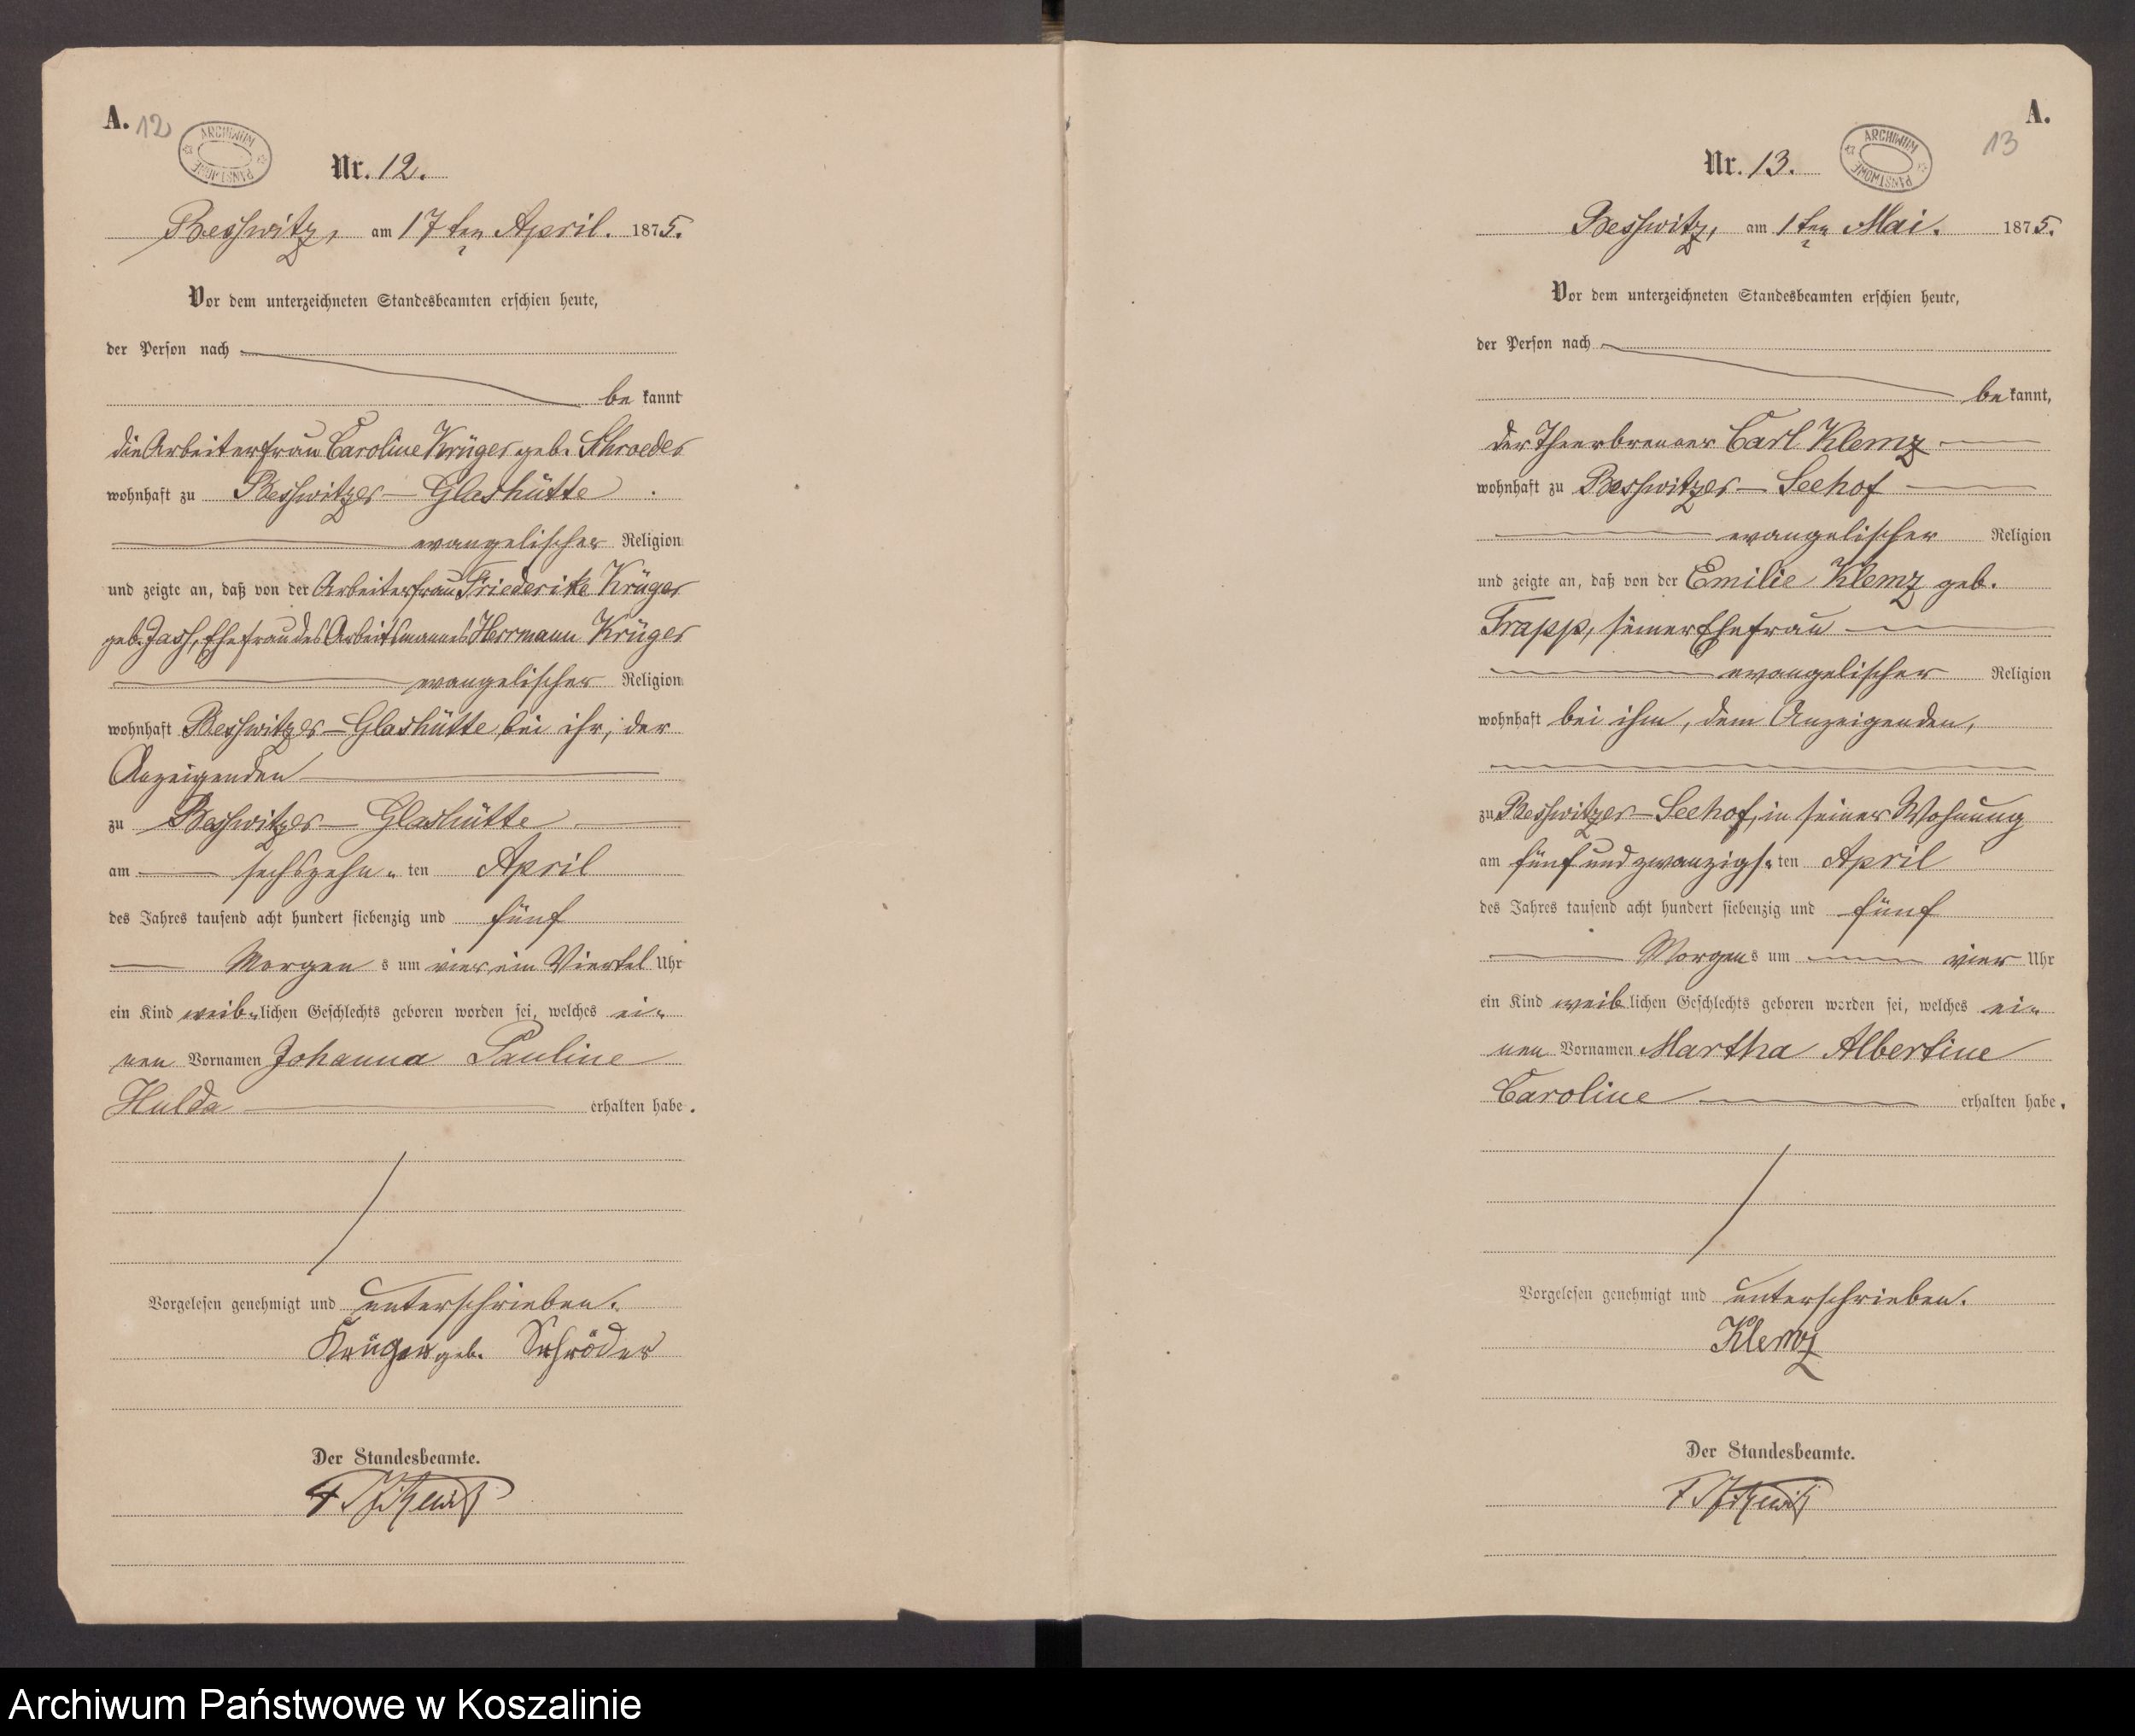 A.
12
ARCHIWUM PAŃSTWOWE
Nr. 12.
Besswitz, am 17ten April. 1875.
Vor dem unterzeichneten Standesbeamten erschien heute,
der Person nach
be kannt
die Arbeiterfrau Caroline Krüger geb. Schroeder
wohnhaft zu Besswitzer-Glashütte
evangelischer Religion
und zeigte an, daß von der Arbeiterfrau Friederike Krüger
geb. Jasch, Ehefrau des Arbeitsmannes Herrmann Krüger
evangelischer Religion
wohnhaft Besswitzer-Glashütte bei ihr, der
Anzeigenden
zu Besswitzer-Glashütte
am sechszehn-ten April
des Jahres tausend acht hundert siebenzig und fünf
Morgen s um vier ein Viertel Uhr
ein Kind weib-lichen Geschlechts geboren worden sei, welches ei-
nen Vornamen Johanna Pauline
Hulda erhalten habe.
Vorgelesen genehmigt und unterschrieben.
Krüger geb. Schröder
Der Standesbeamte.
A.
13
ARCHIWUM PAŃSTWOWE
Nr. 13.
Besswitz, am 1ten Mai. 1875.
Vor dem unterzeichneten Standesbeamten erschien heute,
der Person nach
be kannt,
der Theerbrenner Carl Klemz
wohnhaft zu Besswitzer-Seehof
evangelischer Religion
und zeigte an, daß von der Emilie Klemz geb.
Trapp, seiner Ehefrau
evangelischer Religion
wohnhaft bei ihm, dem Anzeigenden,
zu Besswitzer-Seehof, in seiner Wohnung
am fünf und zwanzigs-ten April
des Jahres tausend acht hundert siebenzig und fünf
Morgen s um vier Uhr
ein Kind weib lichen Geschlechts geboren worden sei, welches ei-
nen Vornamen Martha Albertine
Caroline erhalten habe.
Vorgelesen genehmigt und unterschrieben.
Klemz
Der Standesbeamte.
Archiwum Państwowe w Koszalinie